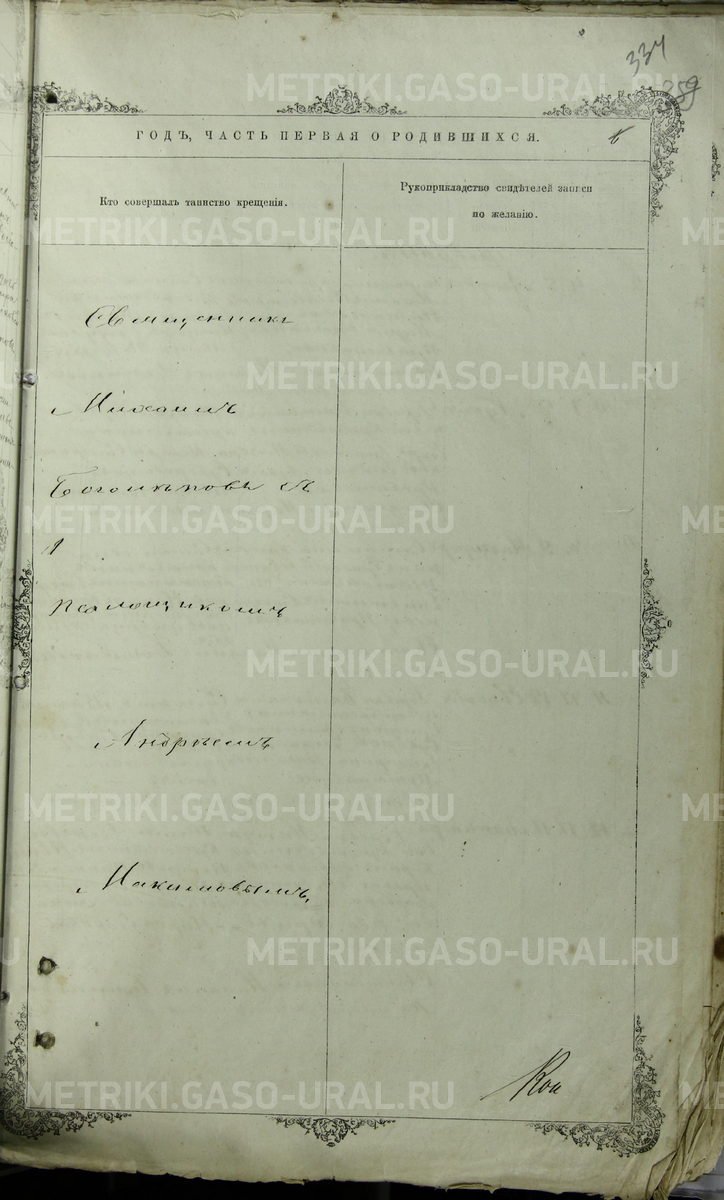 334
259
ГОДЪ, ЧАСТЬ ПЕРВАЯ О РОДИВШИХСЯ.
Кто совершалъ таинство крещенія.
Рукоприкладство свидѣтелей записи
по желанію.
Священникъ
Михаилъ
съ
Псаломщикомъ
Андреемъ
Максимовымъ,
METRIKI.GASO-URAL.RU
METRIKI.GASO-URAL.RU
METRIKI.GASO-URAL.RU
METRIKI.GASO-URAL.RU
METRIKI.GASO-URAL.RU
METRIKI.GASO-URAL.RU
METRIKI.GASO-URAL.RU
METRIKI.GASO-URAL.RU